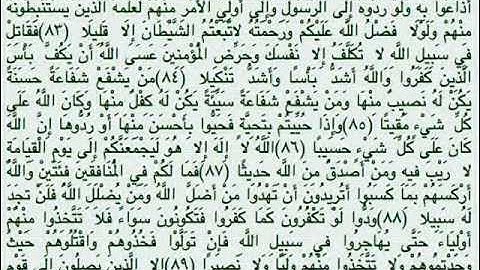 أذاعوا به ولو ردوه إلى الرسول وإلى أولي الأمر منهم لعلمه الذين يستنبطونه
مِنْهُمْ وَلَوْلَا فَضْلُ اللَّهِ عَلَيْكُمْ وَرَحْمَتُهُ لَاتَّبَعْتُمُ الشَّيْطَانَ إِلَّا قَلِيلًا (٨٣)فَقَاتِلْ
فِي سَبِيلِ اللَّهِ لَا تُكَلَّفُ إِلَّا نَفْسَكَ وَحَرِّضِ الْمُؤْمِنِينَ عَسَى اللَّهُ أَنْ يَكُفَّ بَأْسَ
الَّذِينَ كَفَرُوا وَاللَّهُ أَشَدُّ بَأْسًا وَأَشَدُّ تَنْكِيلًا (٨٤)مَنْ يَشْفَعْ شَفَاعَةً حَسَنَةً
يَكُنْ لَهُ نَصِيبٌ مِنْهَا وَمَنْ يَشْفَعْ شَفَاعَةً سَيِّئَةً يَكُنْ لَهُ كِفْلٌ مِنْهَا وَكَانَ اللَّهُ عَلَى
كُلِّ شَيْءٍ مُقِيتًا (٨٥)وَإِذَا حُيِّيتُمْ بِتَحِيَّةٍ فَحَيُّوا بِأَحْسَنَ مِنْهَا أَوْ رُدُّوهَا إِنَّ اللَّهَ
كَانَ عَلَى كُلِّ شَيْءٍ حَسِيبًا (٨٦)اللَّهُ لَا إِلَهَ إِلَّا هُوَ لَيَجْمَعَنَّكُمْ إِلَى يَوْمِ الْقِيَامَةِ
لَا رَيْبَ فِيهِ وَمَنْ أَصْدَقُ مِنَ اللَّهِ حَدِيثًا (٨٧)فَمَا لَكُمْ فِي الْمُنَافِقِينَ فِئَتَيْنِ وَاللَّهُ
أَرْكَسَهُمْ بِمَا كَسَبُوا أَتُرِيدُونَ أَنْ تَهْدُوا مَنْ أَضَلَّ اللَّهُ وَمَنْ يُضْلِلِ اللَّهُ فَلَنْ تَجِدَ
لَهُ سَبِيلًا (٨٨)وَدُّوا لَوْ تَكْفُرُونَ كَمَا كَفَرُوا فَتَكُونُونَ سَوَاءً فَلَا تَتَّخِذُوا مِنْهُمْ
أَوْلِيَاءَ حَتَّى يُهَاجِرُوا فِي سَبِيلِ اللَّهِ فَإِنْ تَوَلَّوْا فَخُذُوهُمْ وَاقْتُلُوهُمْ حَيْثُ
وَجَدْتُمُوهُمْ وَلَا تَتَّخِذُوا مِنْهُمْ وَلِيًّا وَلَا نَصِيرًا (٨٩)إِلَّا الَّذِينَ يَصِلُونَ إِلَى قَوْمٍ